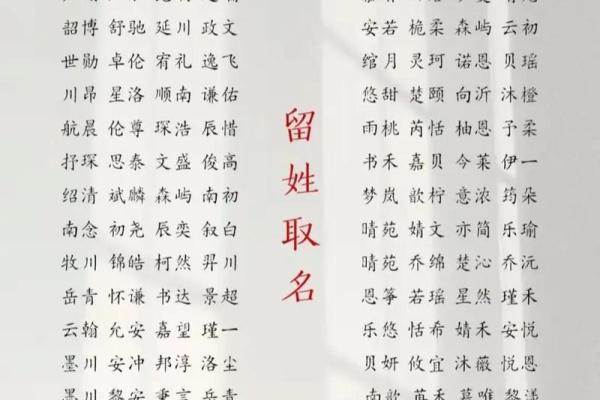 韶博 舒驰 延川 政文
世勋 卓伦 宥礼 逸飞
川昂 星洛 顺南 谦佑
航晨 伦尊 琛浩 辰惜
抒琛 思泰 文盛 俊高
绍清 斌麟 森屿 南初
南念 初尧 辰奕 叙白
牧川 锦皓 柯然 羿川
岳青 怀谦 书达 景超
云翰 允安 嘉望 瑾一
墨川 安冲 邦淳 洛尘
墨川 黎安 秉言 岳青
留姓取名
安若 桅柔 森屿 云初
绾月 灵珂 诺恩 贝瑶
悠甜 楚颐 向沂 沐橙
雨桃 芮恬 柚恩 予柔
书禾 嘉贝 今莱 伊一
梦岚 歆柠 意浓 筠朵
晴苑 婧文 亦简 乐瑜
晴苑 乔绵 楚沁 乔沅
恩筝 若瑶 星然 瑾禾
乐悠 恬希 婧禾 安悦
贝妍 攸宜 沐薇 悦恩
南歆 苒禾 慕唯 黎漾